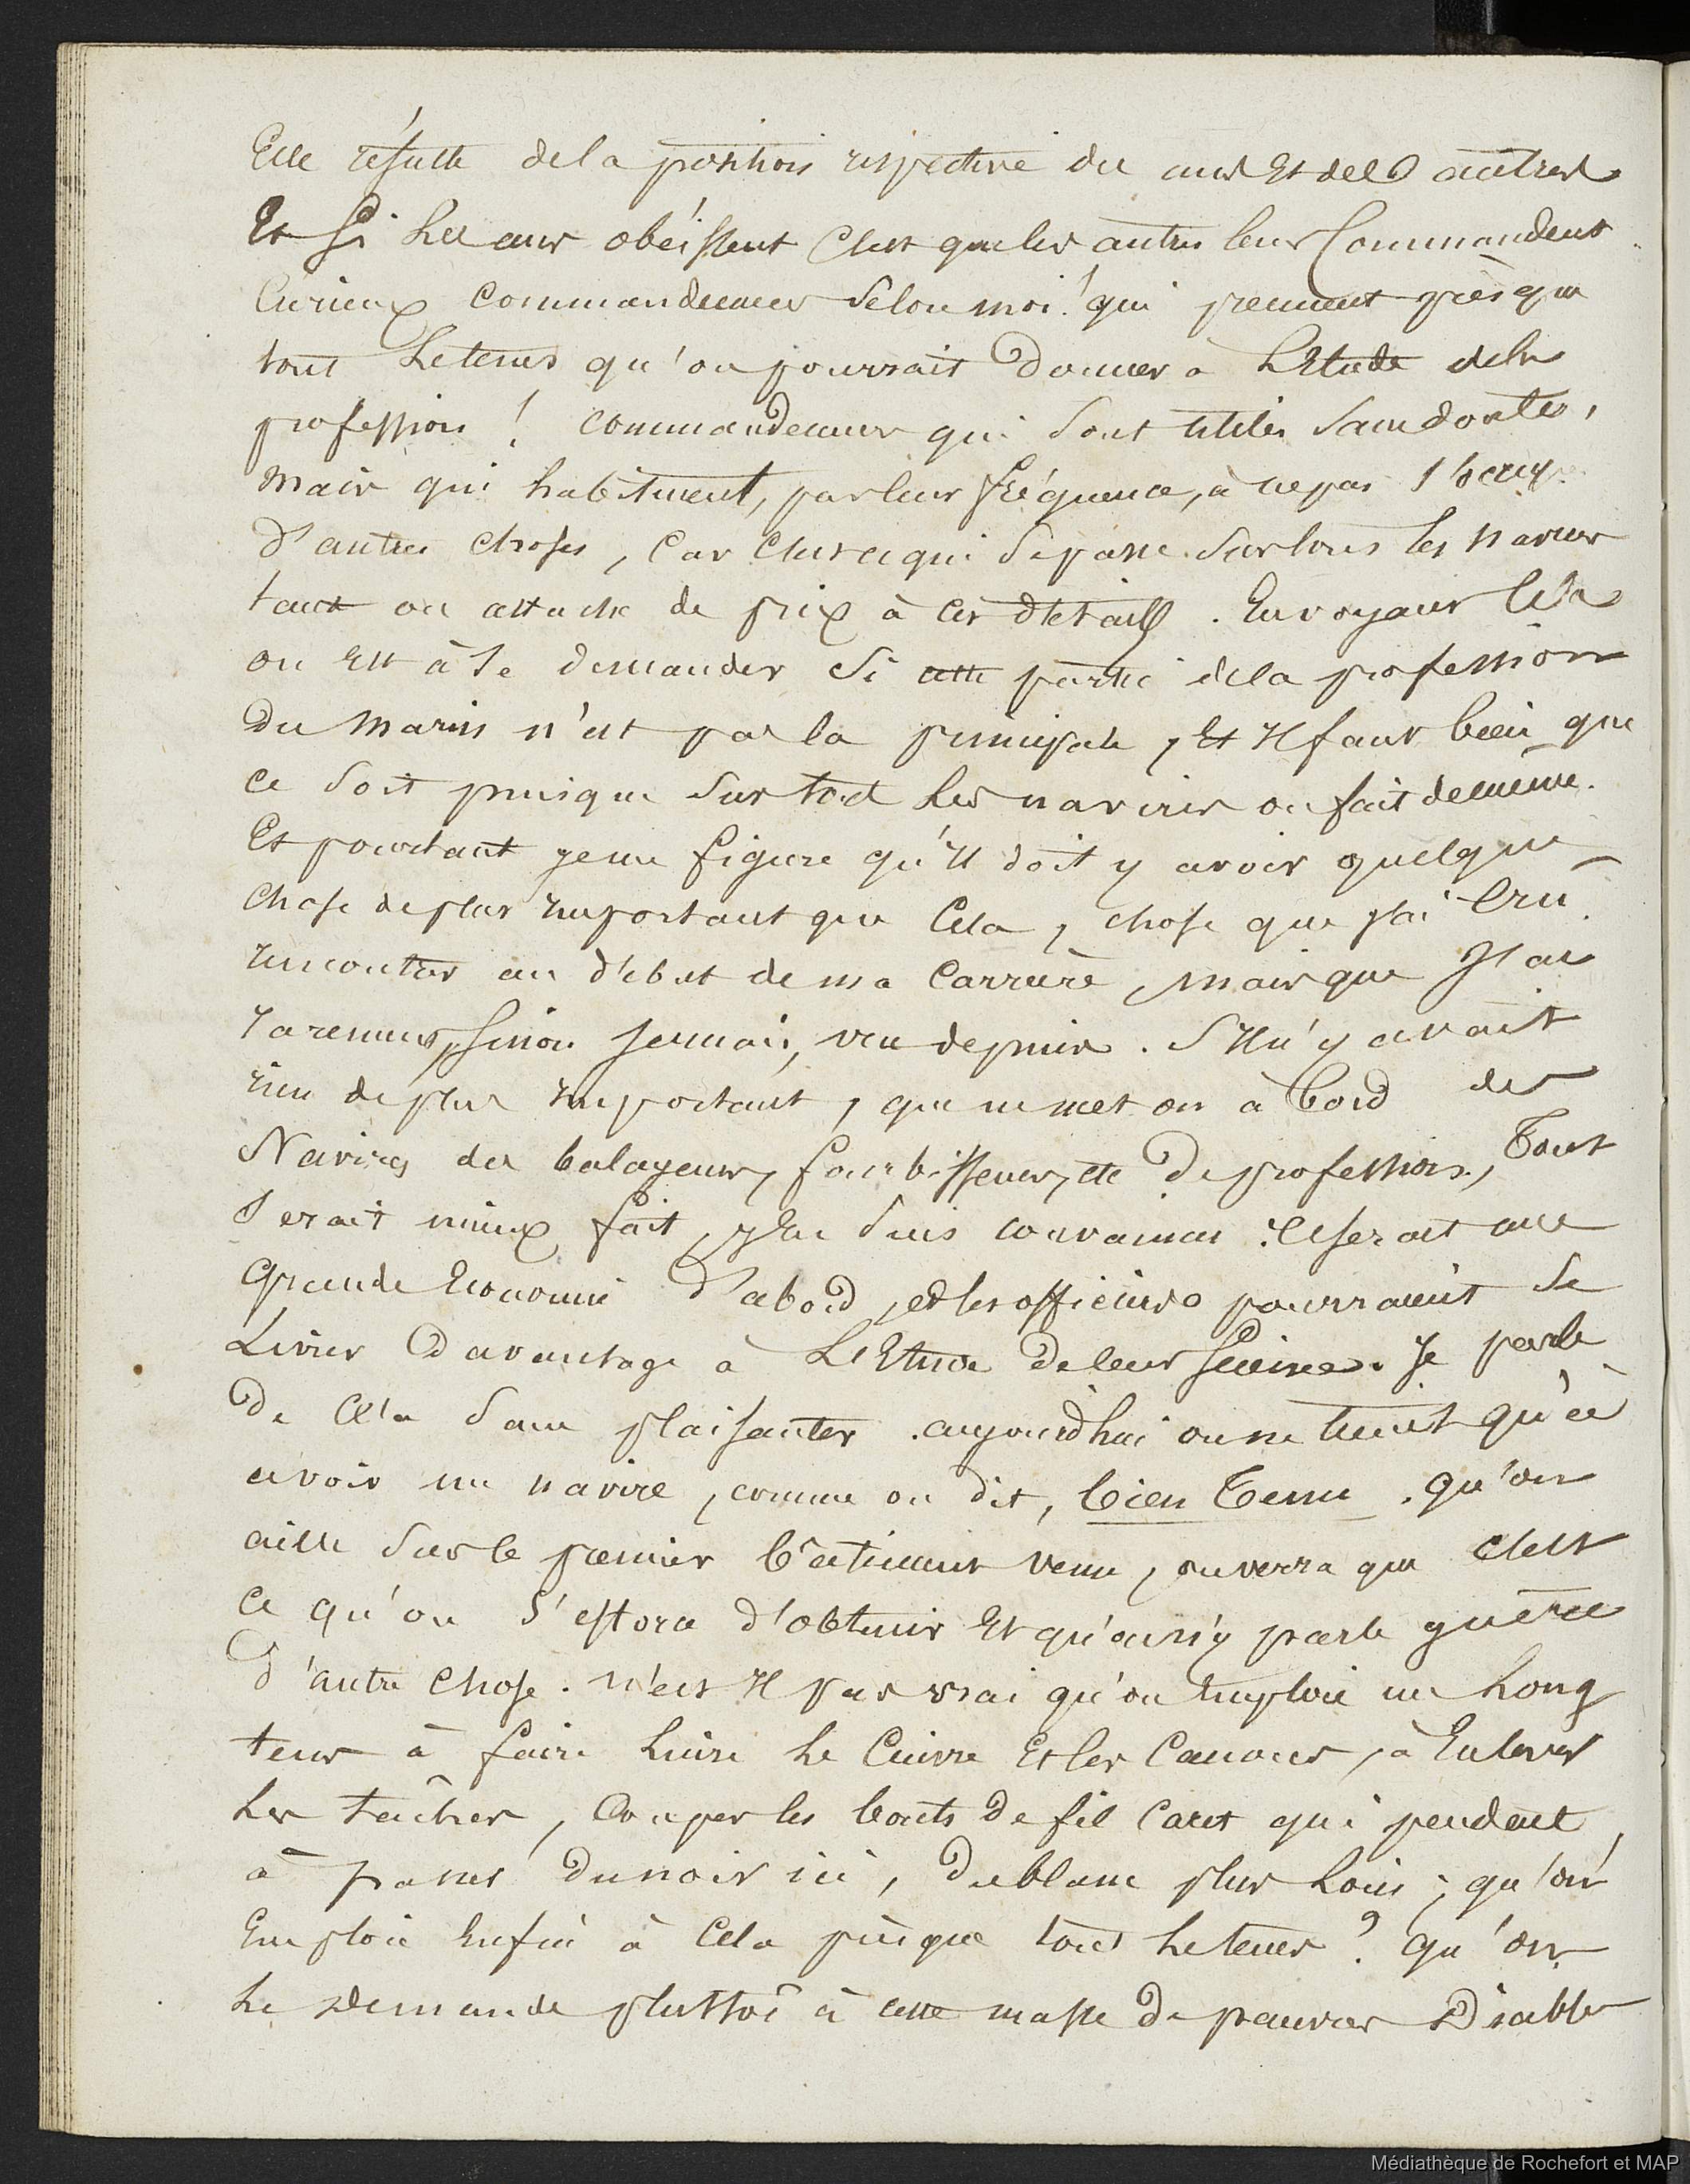 Elle résulte de la position respective des uns Et des autres
Et si Les uns obéissent C'est que les autres leur Commandent
Curieux Commandements Selon moi! qui prennent presque
tout Le tems qu'on pourrait Donner à L'Etude de la
profession! commandements qui sont utiles sans doute,
mais qui habituent, par leur fréquence, à ne pas s'occuper
d'autres choses, Car C'est ce qui se passe sur tous les navires
tant on attache de prix à Ces détails. En voyant Cela
on Est à se demander Si cette partie de la profession
Du Marin n'est pas la principale, Et Il faut bien que
Ce soit puisque Sur tout Les navires on fait de même.
Et pourtant je me figure qu'Il doit y avoir quelque
Chose de plus Important que Cela, chose que j'ai Cru
rencontrer au début de ma Carrière, mais que J'ai
rarement, sinon jamais, vu depuis. S'Il n'y avait
rien de plus Important, que ne met on à bord des
Navires des balayeurs, fourbisseurs, etc De profession, Tout
Serait mieux fait, j'En suis convaincu. Ce serait une
Grande Economie D'abord, et les officiers pourraient Se
Livrer Davantage à L'Etude De leur Science. Je parle
De Cela Sans plaisanter. aujourd'hui on ne tient qu'à
avoir un navire, comme on dit, bien Tenu. qu'on
aille Sur le premier bâtiment venu, on verra que C'est
Ce qu'on S'efforce d'obtenir Et qu'on n'y parle guère
D'autre Chose. n'est Il pas vrai qu'on Emploie un Long
tems à faire Luire Le Cuivre Et les Canons, à Enlever
Les tâches, Couper les bouts De fil Caret qui pendent,
à passer Du noir ici, Du blanc plus Loin; qu'on
Emploie Enfin à Cela presque tout Le tems? Qu'on
Le Demande pluttôt à cette masse De pauvres Diables
Médiathèque de Rochefort et MAP